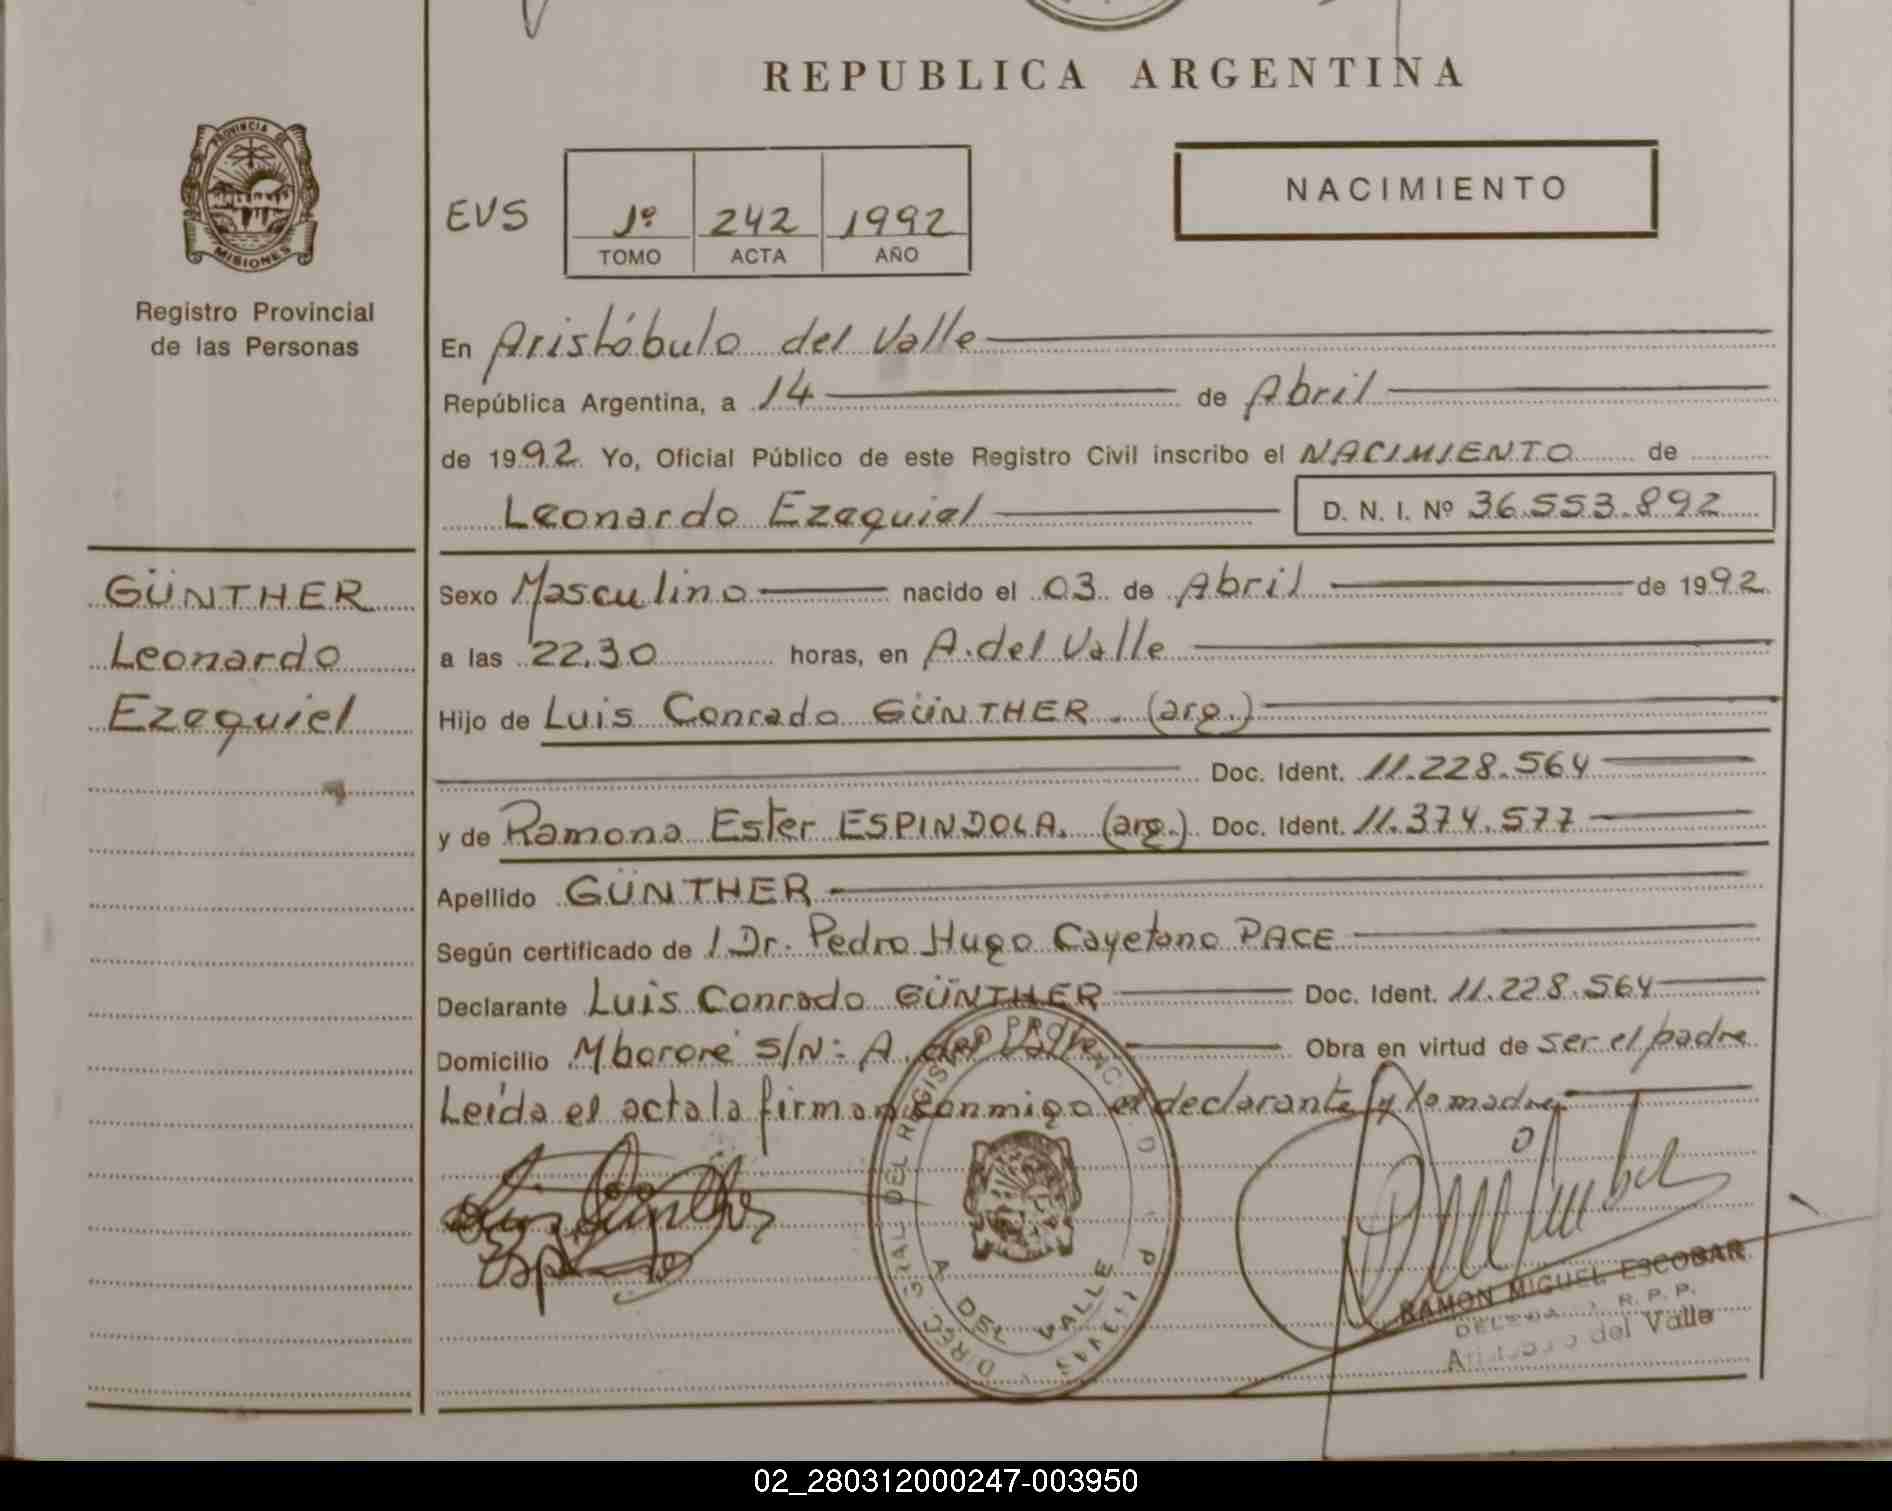 REPUBLICA ARGENTINA
PROVINCIA DE
MISIONES
Registro Provincial
de las Personas
EVS
1º 242 1992
TOMO ACTA AÑO
NACIMIENTO
En Aristóbulo del Valle
República Argentina, a 14 de Abril
de 1992 Yo, Oficial Público de este Registro Civil inscribo el NACIMIENTO de
Leonardo Ezequiel D. N. I. Nº 36.553.892
GÜNTHER
Leonardo
Ezequiel
Sexo Masculino nacido el 03 de Abril de 1992
a las 22.30 horas, en A. del Valle
Hijo de Luis Conrado GÜNTHER. (arg.)
Doc. Ident. 11.228.564
y de Ramona Ester ESPINDOLA. (arg.) Doc. Ident. 11.374.577
Apellido GÜNTHER
Según certificado de / Dr. Pedro Hugo Cayetano PACE
Declarante Luis Conrado GÜNTHER Doc. Ident. 11.228.564
Domicilio Mbororé S/N: A. del Valle Obra en virtud de ser el padre
Leída el acta la firman conmigo el declarante y la madre
A. DEL VALLE
RAMON MIGUEL ESCOBAR
R. P. P.
del Valle
02_280312000247-003950